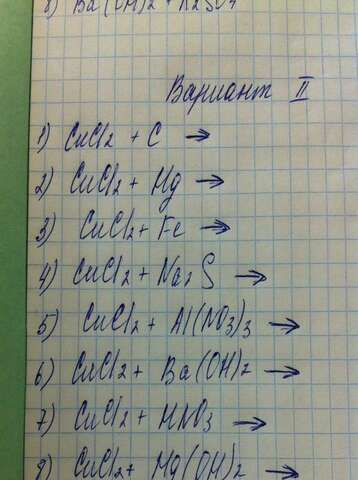 8) Ba(OH)2 + K2SO4
Вариант II
1) CuCl2 + C →
2) CuCl2 + Hg →
3) CuCl2 + Fe →
4) CuCl2 + Na2S →
5) CuCl2 + Al(NO3)3 →
6) CuCl2 + Ba(OH)2 →
7) CuCl2 + HNO3 →
8) CuCl2 + Mg(OH)2 →